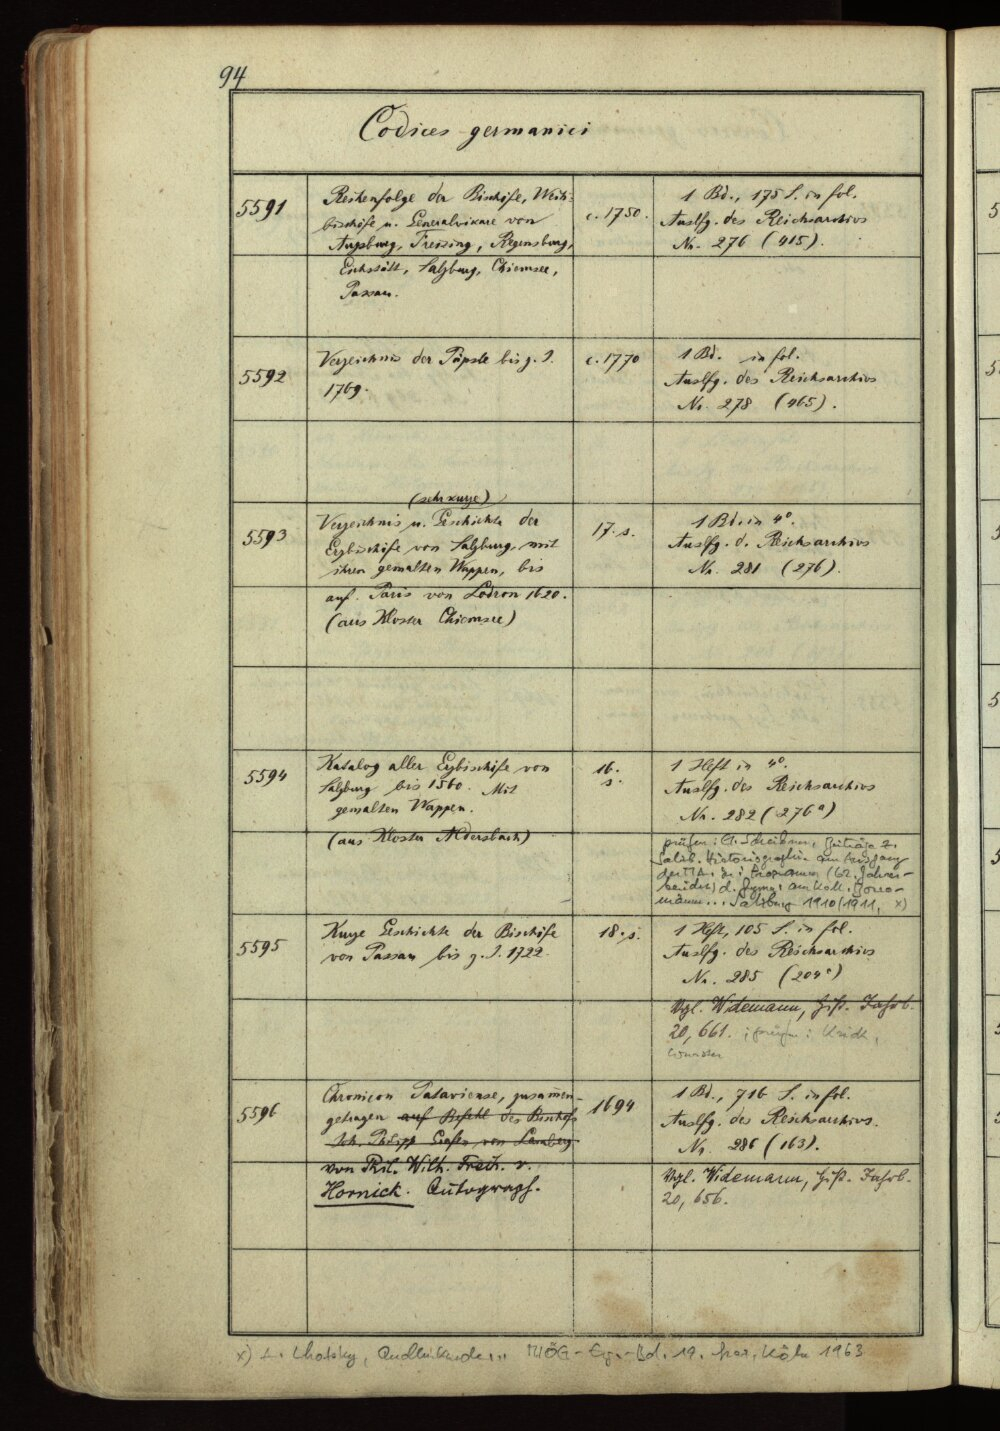 94
Codices germanici
5591
Reihenfolge der Bischöfe, Weih-
bischöfe u. Generalvikare von
Augsburg, Freising, Regensburg,
Eichstätt, Salzburg, Chiemsee,
Passau.
c. 1750.
1 Bd., 175 S. in fol.
Auslfg. des Reichsarchivs
Nr. 276 (415).
5592
Verzeichnis der Päpste bis z. J.
1769.
c. 1770
1 Bd. in fol.
Auslfg. des Reichsarchivs
Nr. 278 (465).
5593
(sehr kurze)
Verzeichnis u. Geschichte der
Erzbischöfe von Salzburg, mit
ihren gemalten Wappen, bis
auf Paris von Lodron 1620.
(aus Kloster Chiemsee)
17. s.
1 Bd. in 4°.
Auslfg. d. Reichsarchivs
Nr. 281 (276).
5594
Katalog aller Erzbischöfe von
Salzburg bis 1560. Mit
gemalten Wappen.
(aus Kloster Aldersbach)
16.
s.
1 Heft in 4°.
Auslfg. des Reichsarchivs
Nr. 282 (276a)
prüfen: Beiträge z.
Salzb. Historiographie am Ausgang
des MA. in: Programm (62. Jahres-
bericht) d. Gymn. am Koll. Borro-
mäum... Salzburg 1910/1911, x)
5595
Kurze Geschichte der Bischöfe
von Passau bis z. J. 1722.
18. s.
1 Heft, 105 S. in fol.
Auslfg. des Reichsarchivs
Nr. 285 (204c)
Vgl. Widemann, Hist. Jahrb.
20, 661. ; prüfen:
5596
Chronicon Pataviense, zusammen-
getragen auf Befehl des Bischofs
Joh. Philipp Grafen von Lamberg
von Phil. Wilh. Freih. v.
Hornick. Autograph.
1694
1 Bd., 716 S. in fol.
Auslfg. des Reichsarchivs.
Nr. 286 (163).
Vgl. Widemann, Hist. Jahrb.
20, 656.
x) Lhotsky, Quellenkunde.. MÖG-Erg.-Bd. 19. Graz, Köln 1963